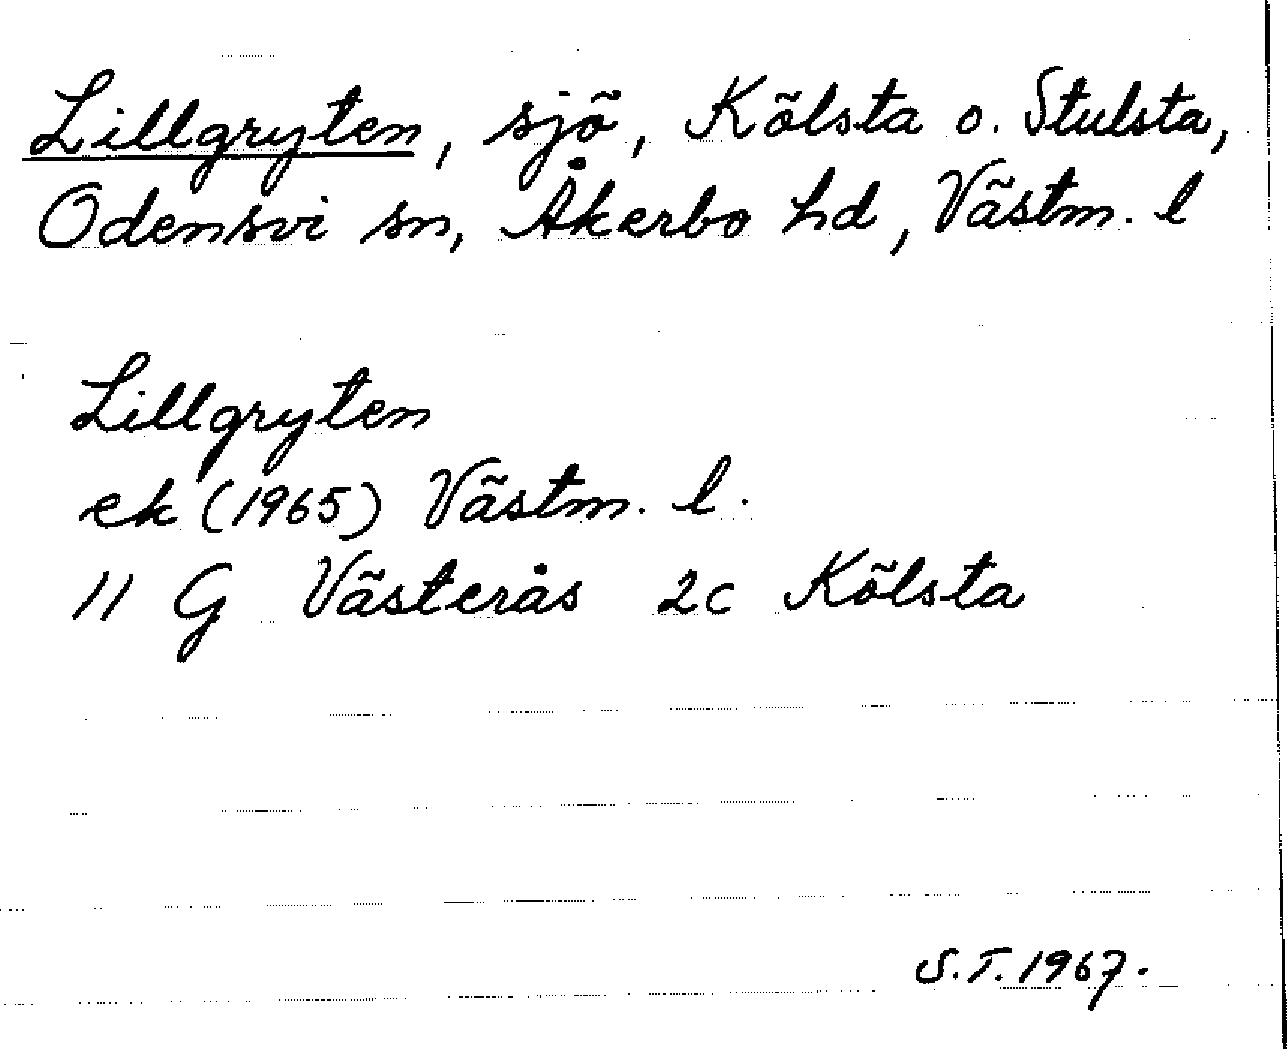 Lillgryten, sjö, Kölsta o. Stulsta,
Odensvi sn, Åkerbo hd, Västm. l
Lillgryten
ek (1965) Västm. l.
11 G Västerås 2c Kölsta
S.T. 1967.